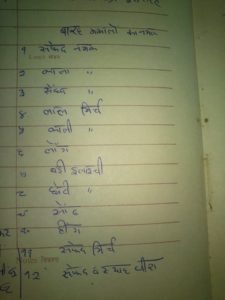 बारह मसालों का नमक
१ सफेद नमक
२ काला "
३ सेंधा "
४ लाल मिर्च
५ काली "
६ लौंग
७ बडी इलायची
८ छोटी "
९ सोंठ
१० हींग
११ सफेद मिर्च
१२ सफेद व स्याह जीरा